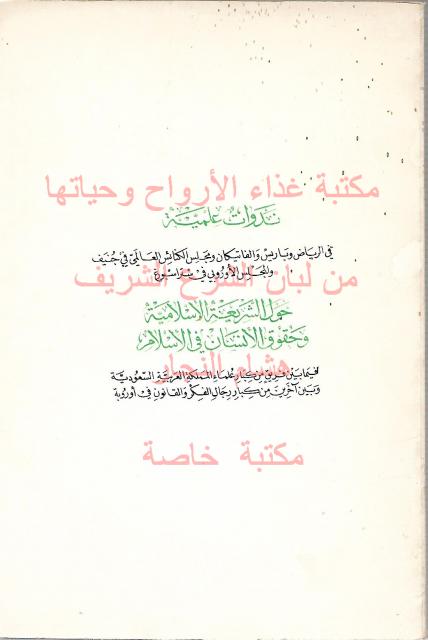 مكتبة غذاء الأرواح وحياتها
ندوات علمية
في الرياض وباريس والفاتيكان ومجلس الكنائس العالمي في جنيف
والمجلس الأوروبي في ستراسبورغ
من لبنان الشرح الشريف
حول الشريعة الإسلامية
وحقوق الانسان في الاسلام
هشام النجار
فيما بين فريق من كبار علماء المملكة العربية السعودية
وبين آخرين من كبار رجال الفكر والقانون في أوروبة
مكتبة خاصة